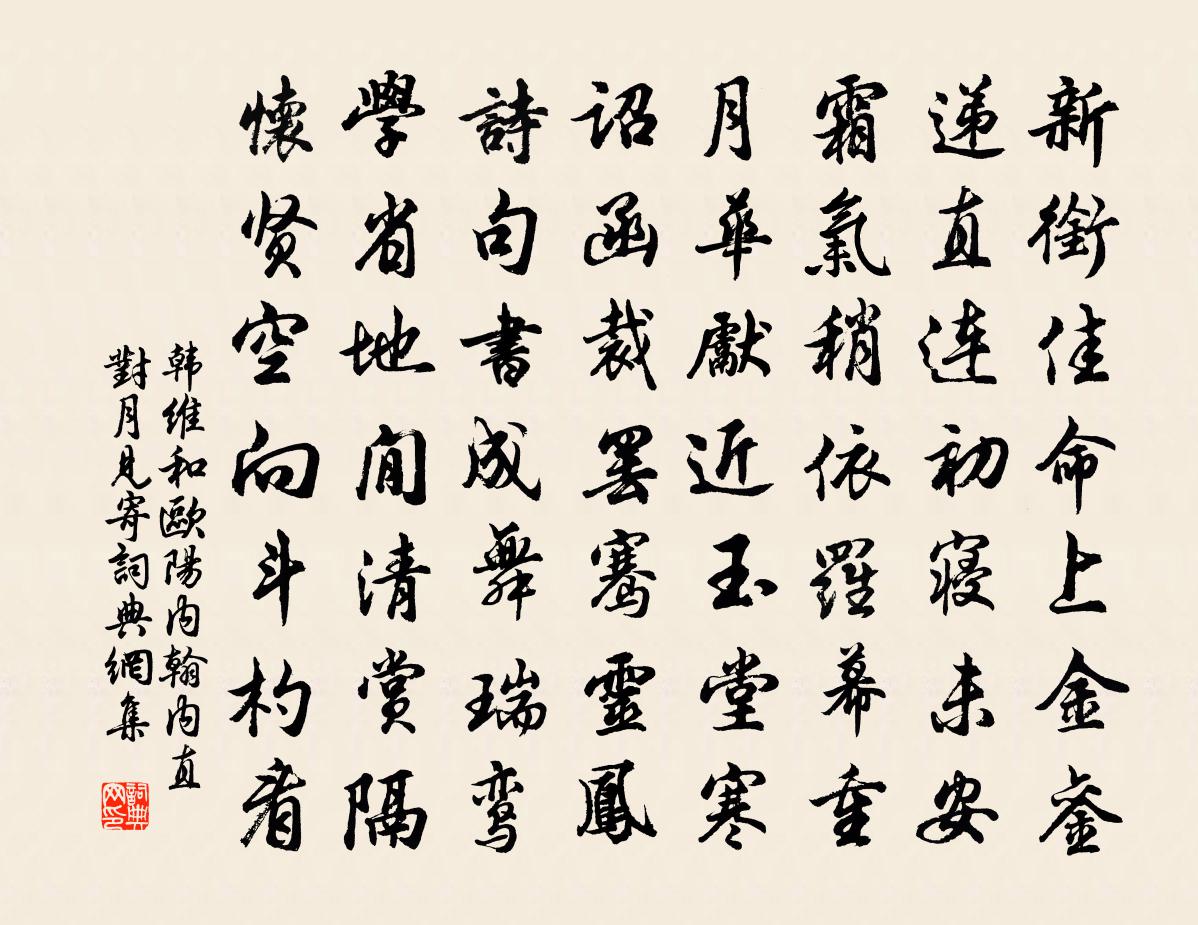 新銜佳命上金銮
递直连初寝未安
霜氣稍依羅幕重
月華獻近玉堂寒
诏函裁罢骞靈鳳
詩句書成舞瑞鸾
學省地閒清赏隔
懷贤空向斗杓看
韩维和歐陽内翰内直
對月見寄詞典網集
詞典
网印